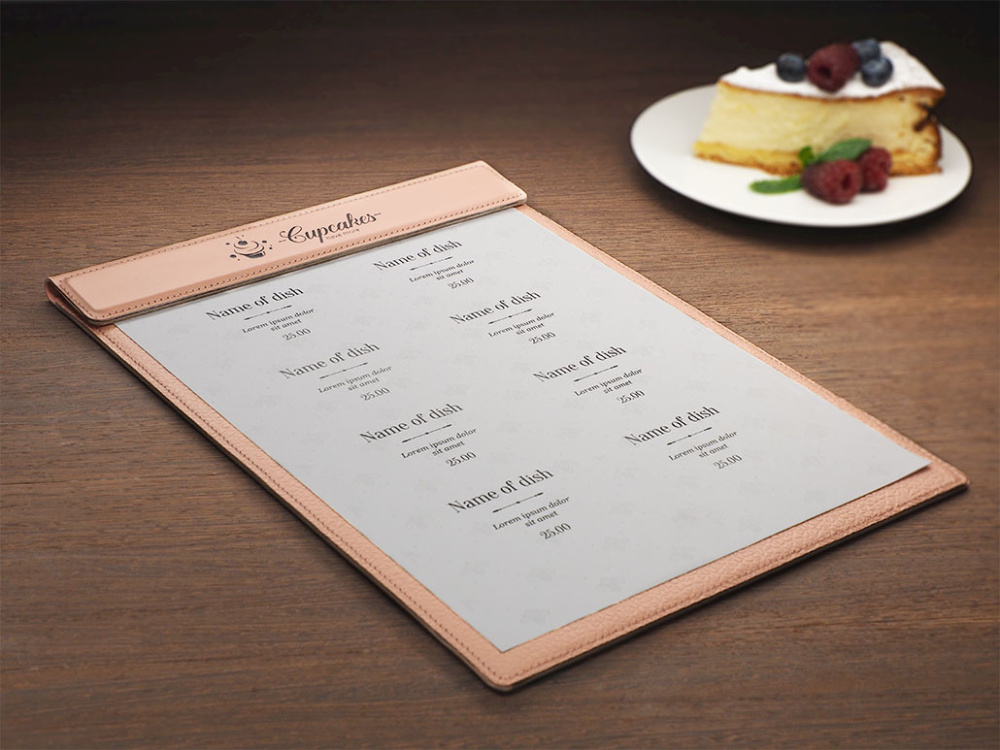 Cupcakes
Name of dish
Lorem ipsum dolor
sit amet
25.00
Name of dish
Lorem ipsum dolor
sit amet
25.00
Name of dish
Lorem ipsum dolor
sit amet
25.00
Name of dish
Lorem ipsum dolor
sit amet
25.00
Name of dish
Lorem ipsum dolor
sit amet
25.00
Name of dish
Lorem ipsum dolor
sit amet
25.00
Name of dish
Lorem ipsum dolor
sit amet
25.00
Name of dish
Lorem ipsum dolor
sit amet
25.00